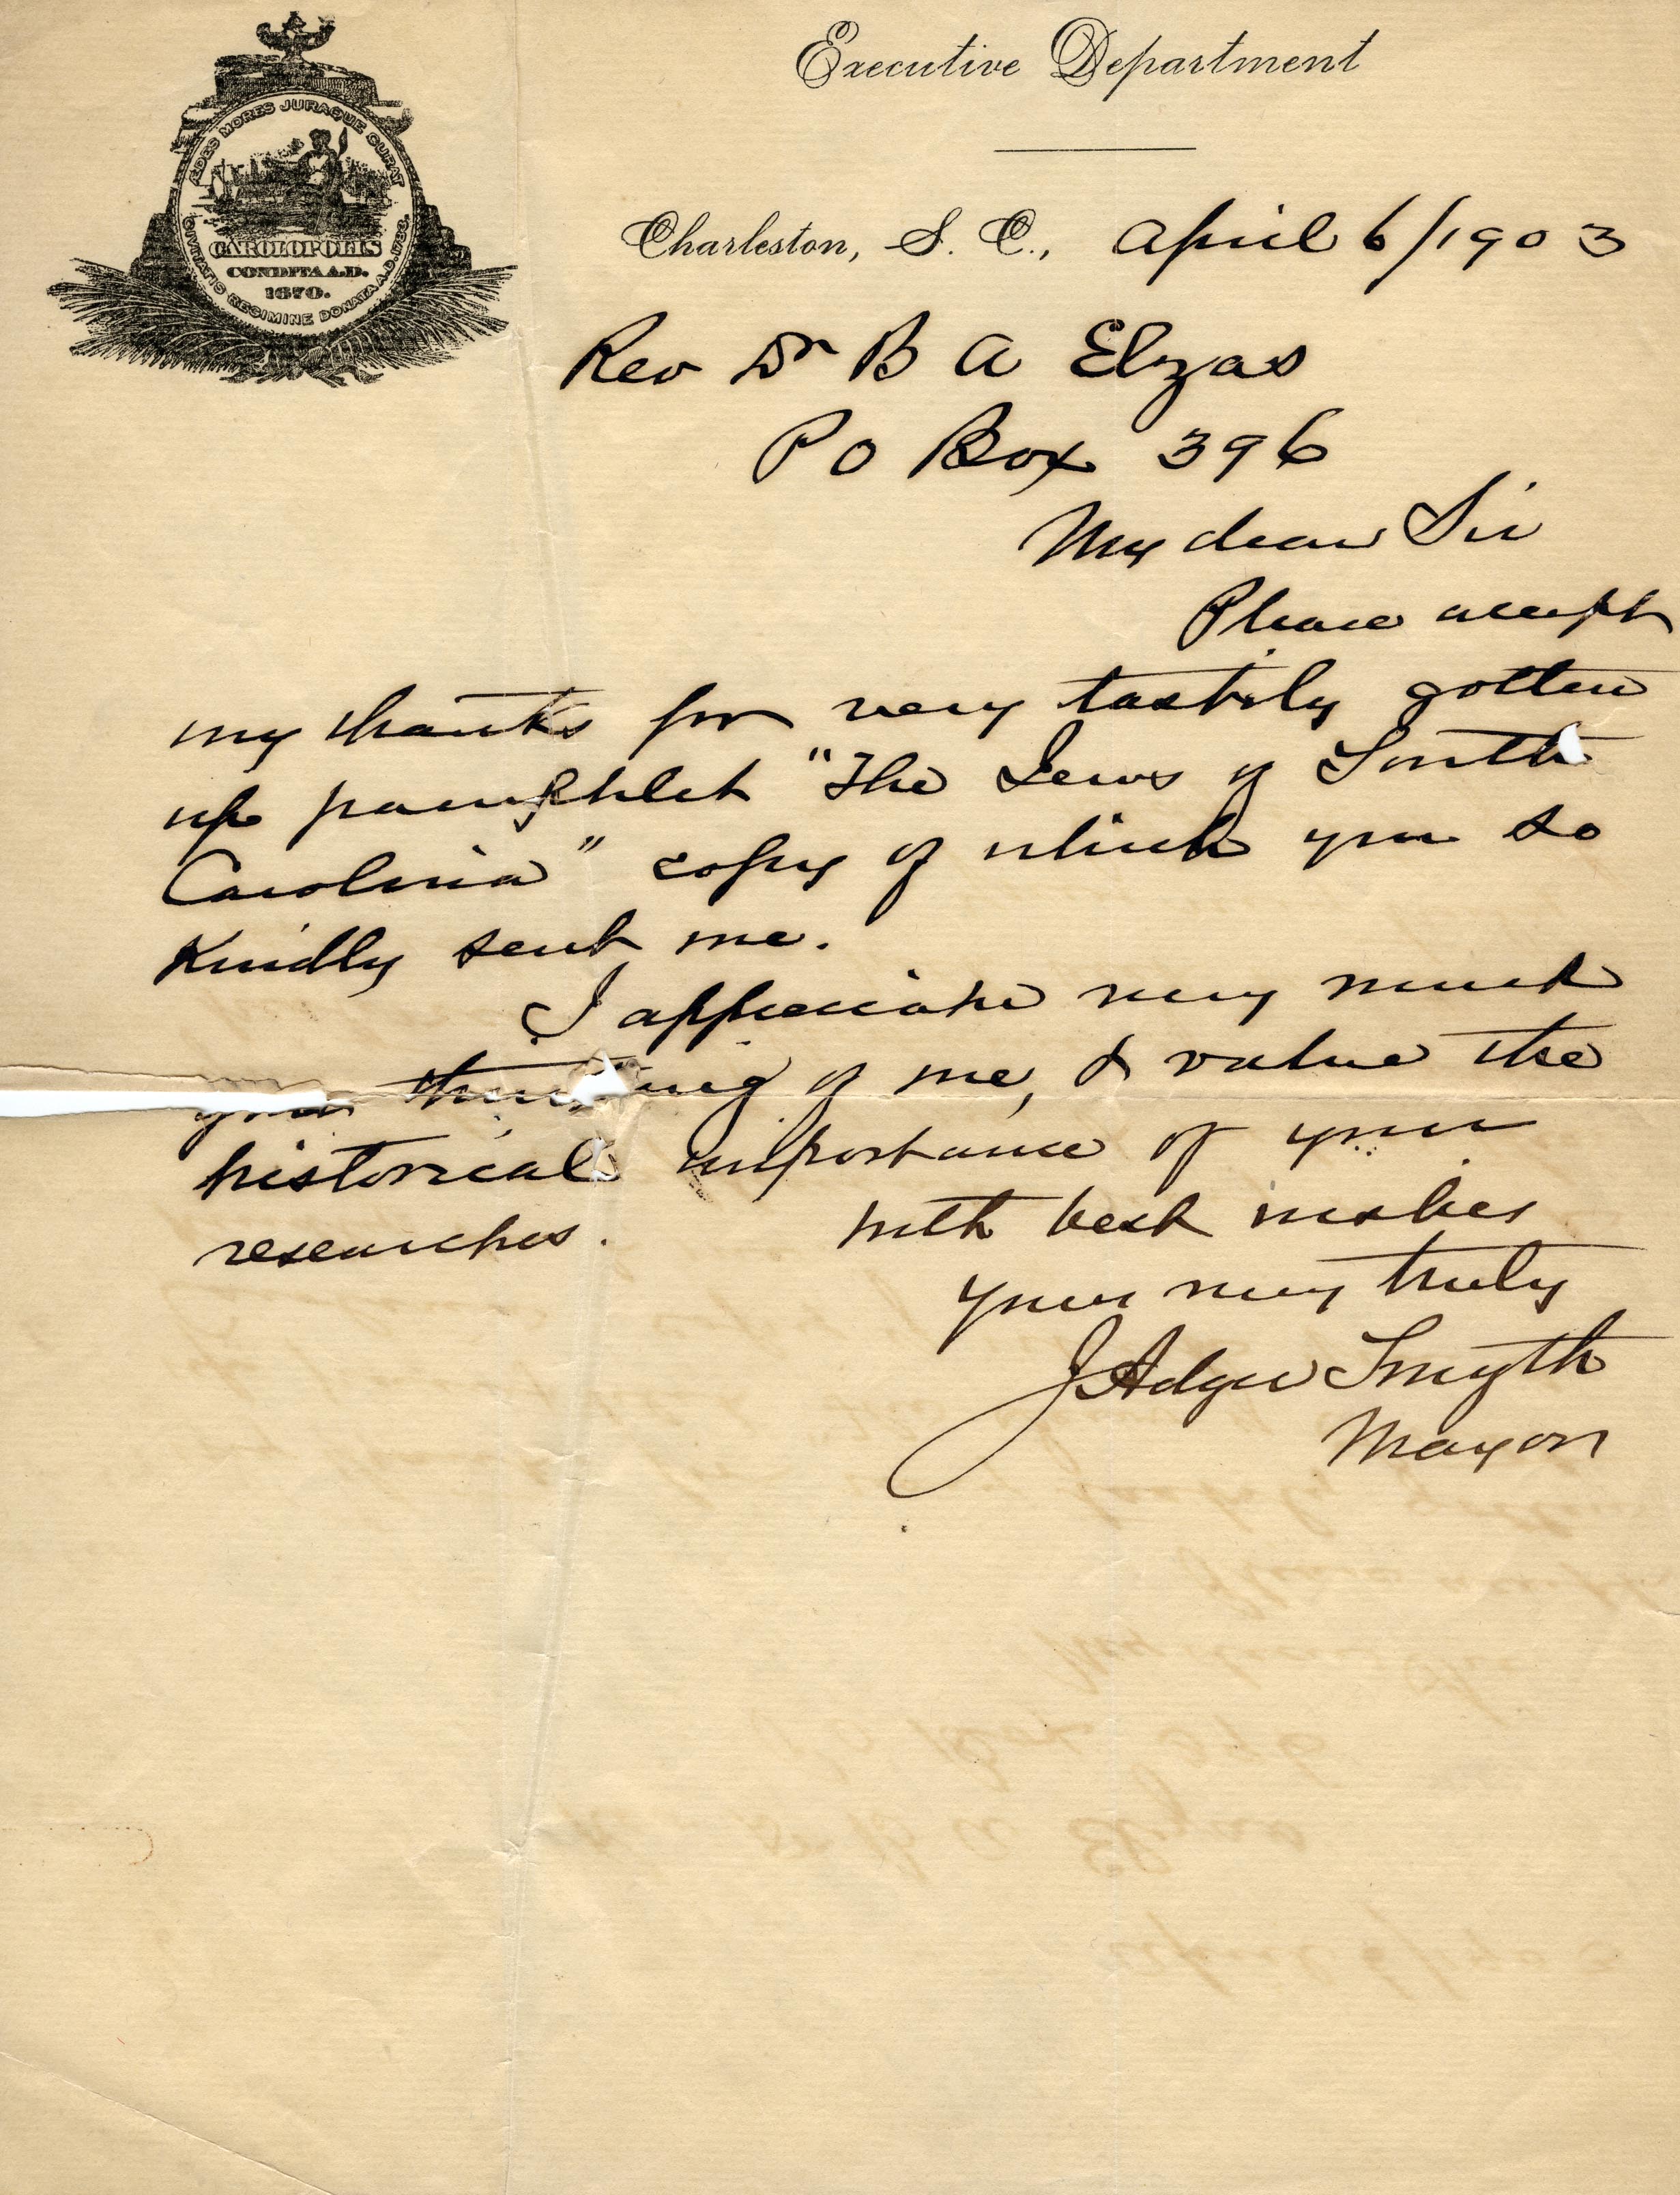 Executive Department
ÆDES MORES JURAQUE CURAT
CAROLOPOLIS
CONDITA A.D.
1670.
CIVITATIS REGIMINE DONATA A.D. 1783.
Charleston, S. C., April 6/1903
Rev Dr B A Elzas
P O Box 396
My dear Sir
Please accept
my thanks for very tastily gotten
up pamphlet "The Jews of South
Carolina" copy of which you so
Kindly sent me.
I appreciate very much
your thinking of me, & value the
historical importance of your
researches.
with best wishes
yours very truly
J Adger Smyth
Mayor